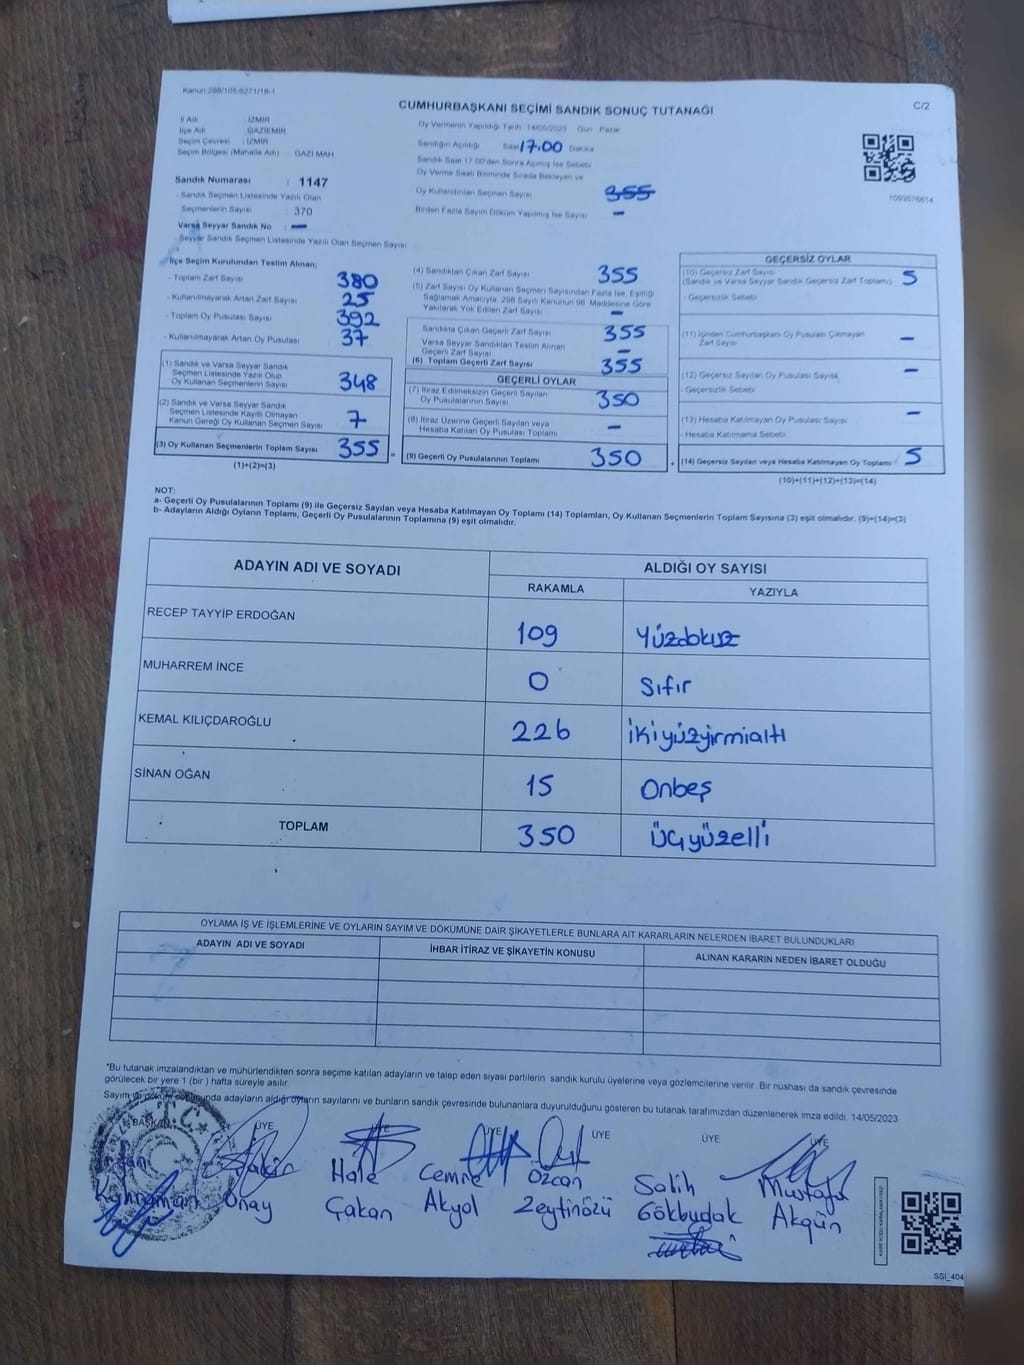 Kanun:298/105.6271/18-1
CUMHURBAŞKANI SEÇİMİ SANDIK SONUÇ TUTANAĞI
C/2
İl Adı : İZMİR
İlçe Adı : GAZİEMİR
Seçim Çevresi : İZMİR
Seçim Bölgesi (Mahalle Adı) : GAZİ MAH
Sandık Numarası : 1147
- Sandık Seçmen Listesinde Yazılı Olan
Seçmenlerin Sayısı : 370
Varsa Seyyar Sandık No : -
Seyyar Sandık Seçmen Listesinde Yazılı Olan Seçmen Sayısı
Oy Vermenin Yapıldığı Tarih : 14/05/2023 Gün : Pazar
Sandığın Açıldığı Saat 17.00 Dakika
Sandık Saat 17:00'den Sonra Açılmış İse Sebebi
Oy Verme Saati Bitiminde Sırada Bekleyen ve
Oy Kullandırılan Seçmen Sayısı 355
Birden Fazla Sayım Döküm Yapılmış İse Sayısı -
İlçe Seçim Kurulundan Teslim Alınan;
- Toplam Zarf Sayısı 380
- Kullanılmayarak Artan Zarf Sayısı 25
- Toplam Oy Pusulası Sayısı 392
- Kullanılmayarak Artan Oy Pusulası 37
(1) Sandık ve Varsa Seyyar Sandık
Seçmen Listesinde Yazılı Olup
Oy Kullanan Seçmenlerin Sayısı 348
(2) Sandık ve Varsa Seyyar Sandık
Seçmen Listesinde Kayıtlı Olmayan
Kanun Gereği Oy Kullanan Seçmen Sayısı 7
(3) Oy Kullanan Seçmenlerin Toplam Sayısı 355 =
(1)+(2)=(3)
(4) Sandıktan Çıkan Zarf Sayısı 355
(5) Zarf Sayısı Oy Kullanan Seçmen Sayısından Fazla İse, Eşitliği
Sağlamak Amacıyla, 298 Sayılı Kanunun 98. Maddesine Göre
Yakılarak Yok Edilen Zarf Sayısı -
Sandıkta Çıkan Geçerli Zarf Sayısı 355
Varsa Seyyar Sandıktan Teslim Alınan
Geçerli Zarf Sayısı -
(6) Toplam Geçerli Zarf Sayısı 355
GEÇERLİ OYLAR
(7) İtiraz Edilmeksizin Geçerli Sayılan
Oy Pusulalarının Sayısı 350
(8) İtiraz Üzerine Geçerli Sayılan veya
Hesaba Katılan Oy Pusulası Toplamı -
(9) Geçerli Oy Pusulalarının Toplamı 350 +
GEÇERSİZ OYLAR
(10) Geçersiz Zarf Sayısı
(Sandık ve Varsa Seyyar Sandık Geçersiz Zarf Toplamı) 5
- Geçersizlik Sebebi
(11) İçinden Cumhurbaşkanı Oy Pusulası Çıkmayan
Zarf Sayısı -
(12) Geçersiz Sayılan Oy Pusulası Sayısı -
- Geçersizlik Sebebi
(13) Hesaba Katılmayan Oy Pusulası Sayısı -
- Hesaba Katılmama Sebebi
(14) Geçersiz Sayılan veya Hesaba Katılmayan Oy Toplamı 5
(10)+(11)+(12)+(13)=(14)
NOT:
a- Geçerli Oy Pusulalarının Toplamı (9) ile Geçersiz Sayılan veya Hesaba Katılmayan Oy Toplamı (14) Toplamları, Oy Kullanan Seçmenlerin Toplam Sayısına (3) eşit olmalıdır. (9)+(14)=(3)
b- Adayların Aldığı Oyların Toplamı, Geçerli Oy Pusulalarının Toplamına (9) eşit olmalıdır.
ADAYIN ADI VE SOYADI
ALDIĞI OY SAYISI
RAKAMLA YAZIYLA
RECEP TAYYİP ERDOĞAN 109 Yüzdokuz
MUHARREM İNCE 0 Sıfır
KEMAL KILIÇDAROĞLU 226 İkiyüzyirmialtı
SİNAN OĞAN 15 Onbeş
TOPLAM 350 Üçyüzelli
OYLAMA İŞ VE İŞLEMLERİNE VE OYLARIN SAYIM VE DÖKÜMÜNE DAİR ŞİKAYETLERLE BUNLARA AİT KARARLARIN NELERDEN İBARET BULUNDUKLARI
ADAYIN ADI VE SOYADI İHBAR İTİRAZ VE ŞİKAYETİN KONUSU ALINAN KARARIN NEDEN İBARET OLDUĞU
*Bu tutanak imzalandıktan ve mühürlendikten sonra seçime katılan adayların ve talep eden siyasi partilerin sandık kurulu üyelerine veya gözlemcilerine verilir. Bir nüshası da sandık çevresinde
görülecek bir yere 1 (bir ) hafta süreyle asılır.
Sayım ve döküm sonucunda adayların aldığı oyların sayılarını ve bunların sandık çevresinde bulunanlara duyurulduğunu gösteren bu tutanak tarafımızdan düzenlenerek imza edildi. 14/05/2023
BAŞKAN ÜYE ÜYE ÜYE ÜYE ÜYE ÜYE
T.C.
Kahraman
Onay
Hale
Çakan
Cemre
Akyol
Özcan
Zeytinözü
Salih
Gökbudak
Mustafa
Akgün
SSI_404